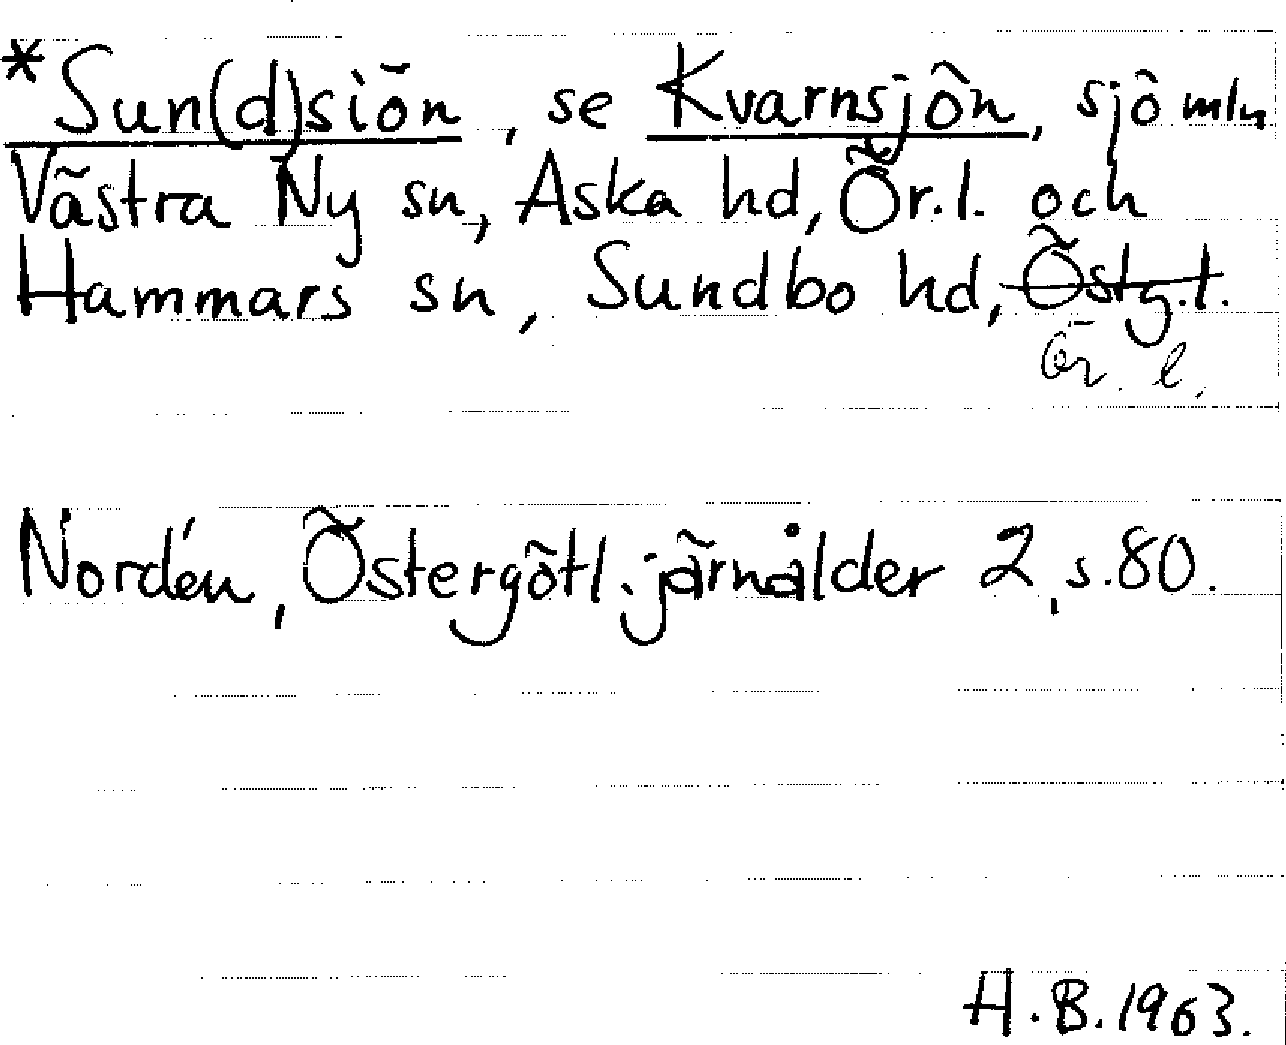 *Sun(d)siön, se Kvarnsjön, sjö mln
Västra Ny sn, Aska hd, Ör.l. och
Hammars sn, Sundbo hd, Östg.l.
Ör. l.
Nordén, Östergötl. järnålder 2, s.80.
H.B.1963.